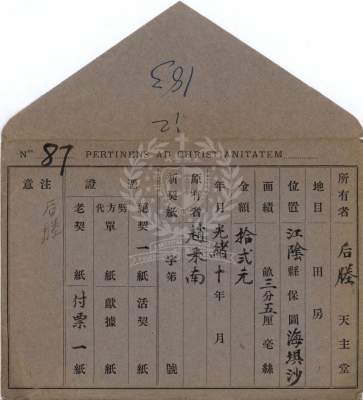 183
12
Nus 87 PERTINENS AD CHRISTIANITATEM
所有者 后塍 天主堂
地目 田房
位置 江陰縣保圖海壩沙
面積 畝三分五厘毫絲
金額 拾貳元
年月 光緒十年 月
原有者 趙来南
新契紙 字第 號
憑證 絕契一紙 活契 紙
代方單 紙 獻據 紙
老契 紙 付票一紙
注意 后塍